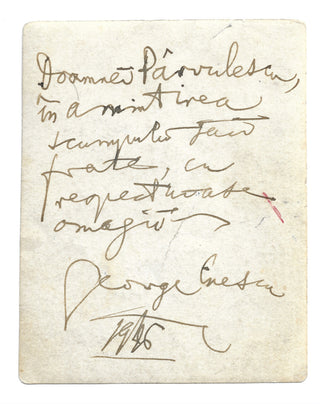 Doamnei Pârvulescu,
în amintirea
scumpului său
frate, cu
respectuoase
omagii
George Enescu
1946